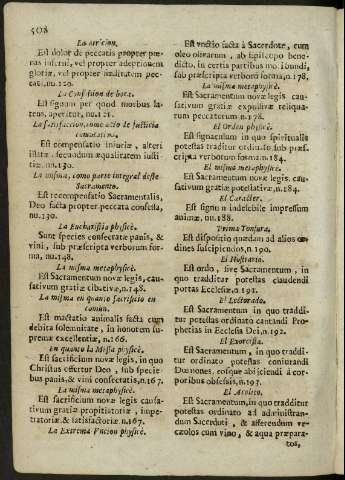 508
La atricion.
Est dolor de peccatis propter pœ-
nas inferni, vel propter adeptionem
gloriæ, vel propter fœditatem pec-
cati, nu.120.
La Confession de boca.
Est signum per quod morbus la-
tens, aperitur, nu.121.
La satisfaccion, como acto de justicia
comutativa.
Est compensatio iniuriæ, alteri
illatæ, secundum æqualitatem iusti-
tiæ, nu.130.
La misma, como parte integral deste
Sacramento.
Est recompensatio Sacramentalis,
Deo facta propter peccata confessa,
nu.130.
La Eucharistia physicè.
Sunt species consecratæ panis, &
vini, sub præscripta verborum for-
ma, nu.148.
La misma metaphysicè.
Est Sacramentum novæ legis, cau-
sativum gratiæ cibativæ, nu.148.
La misma en quanto sacrificio en
comun.
Est mactatio animalis facta cum
debita solemnitate, in honorem su-
premæ excellentiæ, n.166.
En quanto la Missa physicè.
Est sacrificium novæ legis, in quo
Christus offertur Deo, sub specie-
bus panis, & vini consecratis, n.167.
La misma metaphysicè.
Est sacrificium novæ legis causa-
tivum gratiæ propitiatoriæ, impe-
tratoriæ, & satisfactoriæ, n.167.
La Extrema Vncion physicè.
Est vnctio facta à Sacerdote, cum
oleo olivarum, ab Episcopo bene-
dicto, in certis partibus moribundi,
sub præscripta verborũ forma, n.178.
La misma metaphysicè.
Est Sacramentum novæ legis cau-
sativum gratiæ expulsivæ reliquia-
rum peccatorum, n.177.
El Orden physicè.
Est signaculum in quo spiritualis
potestas traditur ordinato, sub præs-
cripta verborum forma, n.184.
El mismo metaphysicè.
Est Sacramentum novæ legis, cau-
sativum gratiæ potestativæ, n.184.
El Caracter.
Est signum indelebile impressum
animæ, nu.188.
Prima Tonsura.
Est dispositio quædam ad alios or-
dines suscipiendos, n.190.
El Hostiario.
Est ordo, sive Sacramentum, in
quo traditur potestas claudendi
portas Ecclesiæ, n.191.
El Lectorado.
Est Sacramentum in quo traddi-
tur potestas ordinato cantandi Pro-
phetias in Ecclesia Dei, n.192.
El Exorcista.
Est Sacramentum, in quo traddi-
tur ordinato potestas coniurandi
Dæmones, eosque abijciendi à cor-
poribus obsessis, n.193.
El Acolito.
Est Sacramentum, in quo traddituř
potestas ordinato ad administran-
dum Sacerdoti, & afferendum vr-
ceolos cum vino, & aqua præpara-
tos,